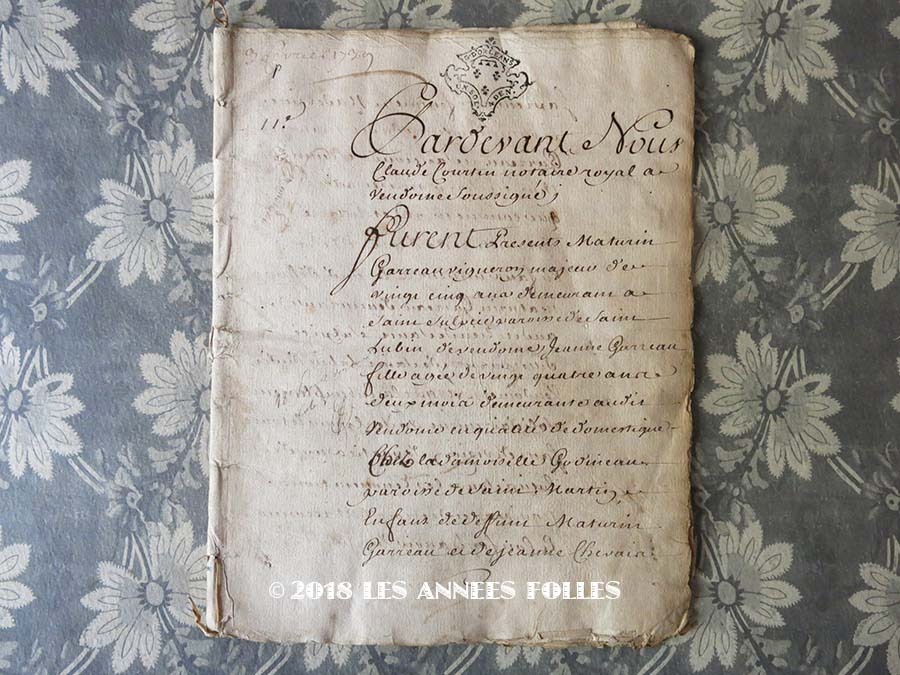 3 avril 1739
G. D'ORLEANS
11e
Pardevant Nous
Claude Courtin notaire royal a
Vendome Soussigné;
Furent Presents Maturin
Garreau vigneron majeur de
vingt cinq ans demeurant a
Saint Sulpice paroisse de Saint
Lubin de vendome, Jeanne Garreau
fille agée de vingt quatre ans
deux mois demeurante audit
Vendome en qualité de domestique
Chez la damoiselle Godineau
paroisse de Saint Martin
Enfans de deffunt Maturin
Garreau et de jeanne Chevais
© 2018 LES ANNEES FOLLES